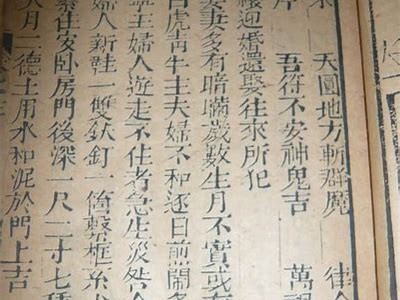 天圓地方斬群魔 律令
吾符不安神鬼吉 萬
迎婚還娶往來所犯
妻多有暗瞞歲數生月不實或
白虎青牛主夫婦不和逐日前鬧多
主婦人遊走不住者急生災咎
婦人新鞋一雙鈇釘一箇繫框
住安臥房門後深一尺二寸七種
月二德土用水和泥於門上吉